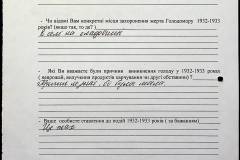 - Чи відомі Вам конкретні місця захоронення жертв Голодомору 1932-1933
років? (якщо так, то де?)
в селі на кладовищі
- Які Ви вважаєте були причини виникнення голоду у 1932-1933 роках
( неврожай, вилучення продуктів харчування чи другі обставини)?
не знаю, бо була мала.
- Ваше особисте ставлення до подій 1932-1933 років ( за бажанням)
Це жах